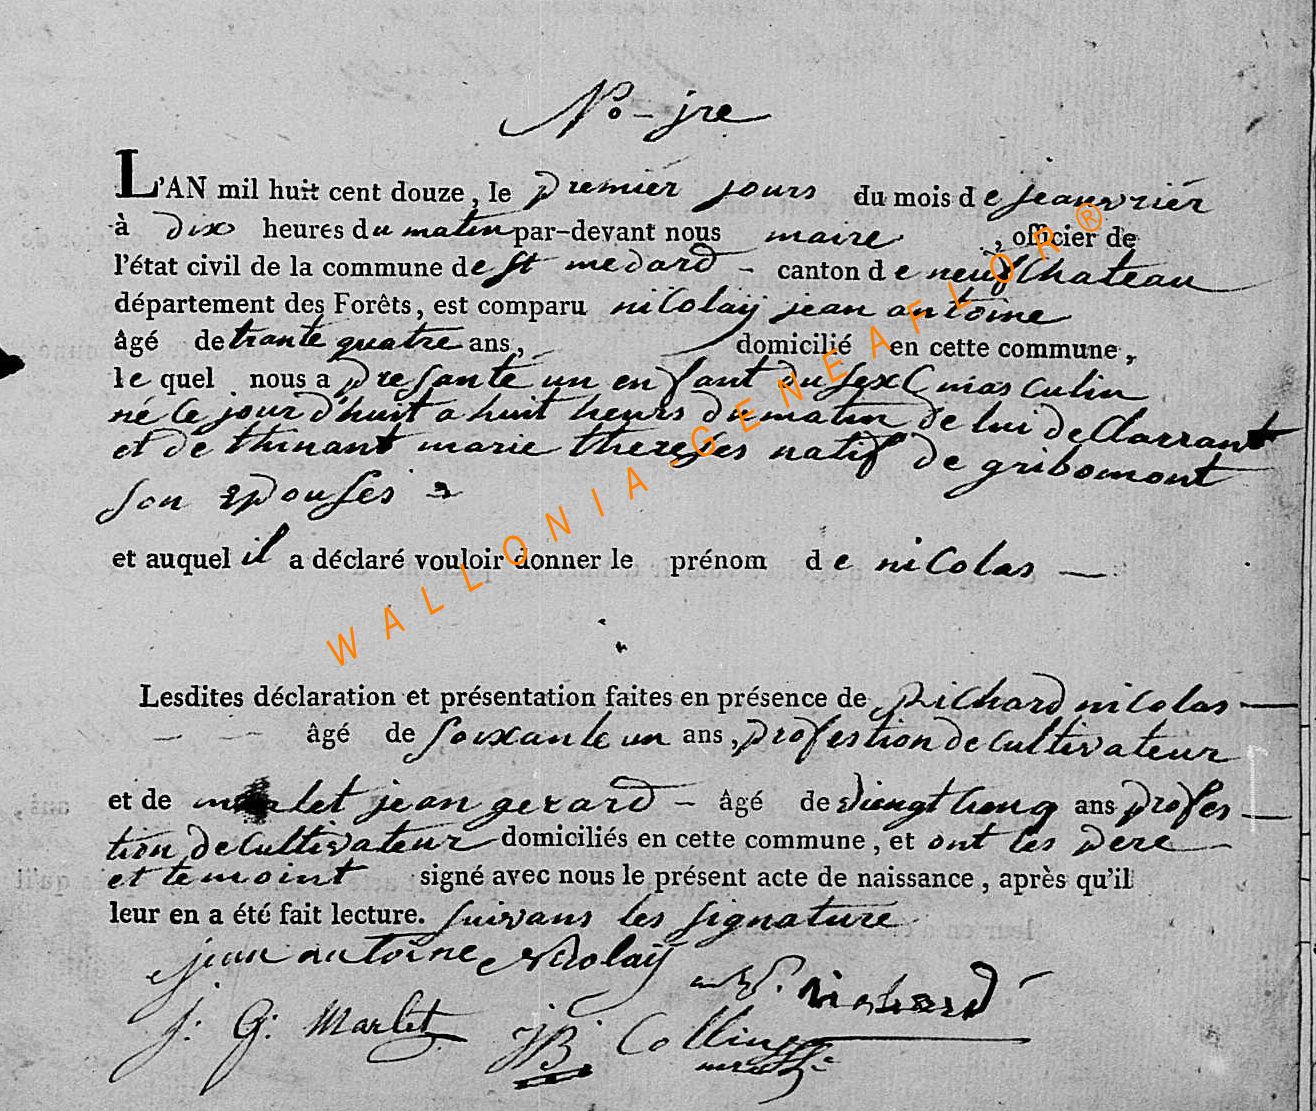 No - jre
L'AN mil huit cent douze, le premiér jours du mois de jeanvriér
à dix heures du matin par-devant nous maire, officier de
l'état civil de la commune de St medard - canton de neufchateau
département des Forêts, est comparu nicolaÿ jean antoine
âgé de trante quatre ans, domicilié en cette commune,
le quel nous a presanté un enfant du sex masculin
né le jour d'huit a huit heurs du matin de lui declarrant
et de thinant marie thereses natif de gribomont
son epouses
et auquel il a déclaré vouloir donner le prénom de nicolas —
Lesdites déclaration et présentation faites en présence de Richard nicolas —
— âgé de soixante un ans, profestion de cultivateur
et de marlet jean gerard - âgé de viengt cinq ans profes —
tion de cultivateur domiciliés en cette commune, et ont les pere
et temoint signé avec nous le présent acte de naissance, après qu'il
leur en a été fait lecture. suivans les signature
jean antoine Nicolaÿ
Richard
J: G: Marlet JB Collin
WALLONIA-GENEAFLOR®